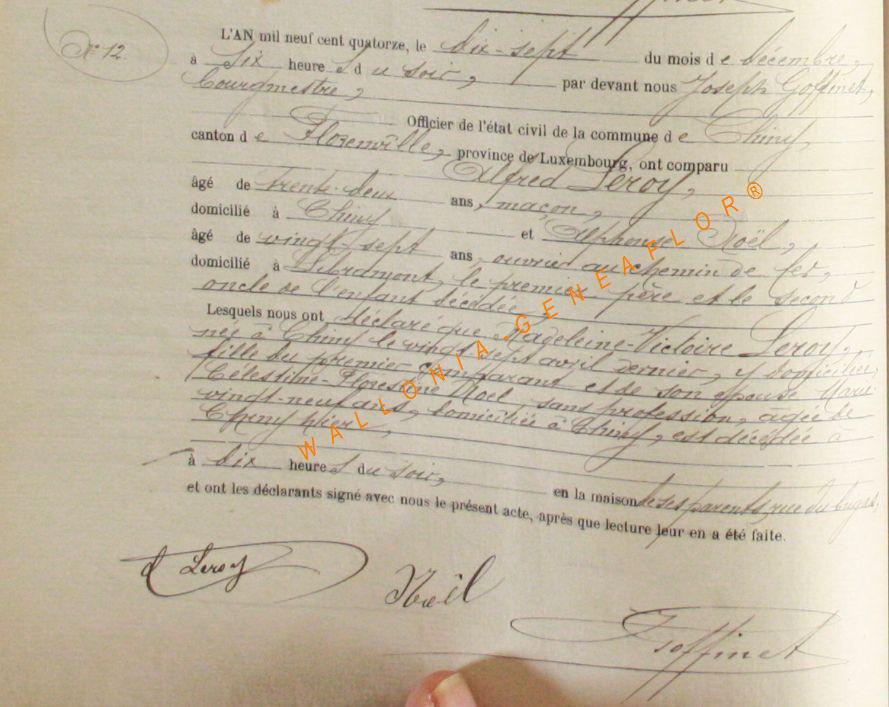 N° 12.
L'AN mil neuf cent quatorze, le dix-sept du mois de décembre,
à six heures du soir, par devant nous Joseph Goffinet,
bourgmestre,
Officier de l'état civil de la commune de Chiny,
canton de Florenville, province de Luxembourg, ont comparu
Alfred Leroy,
âgé de trente-deux ans, maçon,
domicilié à Chiny et Alphonse Noël,
âgé de vingt-sept ans, ouvrier au chemin de fer,
domicilié à Libramont, le premier père et le second
oncle de l'enfant décédée
Lesquels nous ont déclaré que Madeleine-Victoire Leroy,
née à Chiny le vingt sept avril dernier, y domiciliée,
fille du premier comparant et de son épouse Marie
Célestine-Florestine Noël, sans profession, âgée de
vingt-neuf ans, domiciliée à Chiny, est décédée à
Chiny hier,
à dix heures du soir, en la maison de ses parents, rue du
et ont les déclarants signé avec nous le présent acte, après que lecture leur en a été faite.
A Leroy
Noël
J Goffinet
WALLONIA GENEAFLOR ®